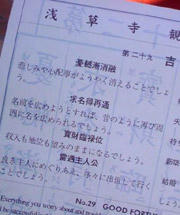 浅草寺観
第二十九 吉
憂轗漸消融
悲しみや心配事がようやく消えることでしょ
う。
求名得再通
名誉を広めようとすれば、昔のように再び
に名を広められるでしょう。
寳財臨禄位
収入も地位も望みのままになるでしょう。
當遇主人公
良き主人にめぐりあえ、序々に出世して行く
とでしょう。
No.29 GOOD FORTUNE
Everything you worry about and